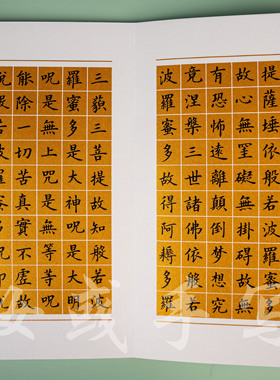 提薩埵依般若波羅蜜多
故心無罣礙無掛礙故無
有恐怖遠離顛倒夢想究
竟涅槃三世諸佛依般若
波羅蜜多故得阿耨多羅
三藐三菩提故知般若波
羅蜜多是大神呪是大明
呪是無上呪是無等等呪
能除一切苦真實不虛故
手写